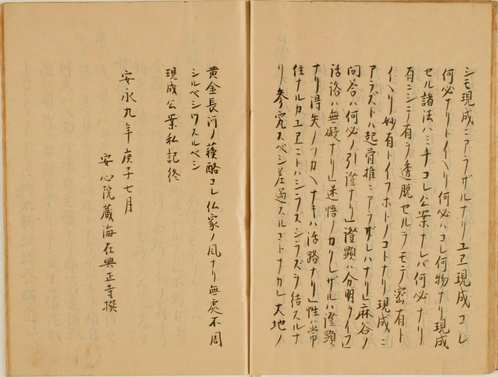 シモ現成ニアラザルナリユヱ現成コレ
何必ナリトイヘリ何必ハコレ何物ナリ現成
セル諸法ハミナコレ公案ナレバ何必ナリ
有ニシテ有ヲ透脱セルヲモテ密有ト
イヘリ妙有トイフホドノコトナリ現成ニ
アラズトハ起骨推ニアラザレハナリ」麻谷ノ
問答ハ何必ノ引證ナリ」證顕ハ分明ナイフ
活路ハ無礙ナリ」迷悟ノカヽレザルハ證顕
ナリ得失ノツカヘナキハ活路ナリ」性ハ常
住ナルカユヱニトハシラズシラズヲ結スルナ
リ参究スベシ差過スルコトナカレ」大地ノ
黄金長河ノ蘓酪コレ仏家ノ風ナリ無處不周
シルベシワスルベシ
現成公案私記終
安永九年庚子七月
安心院蔵海在興正寺撰